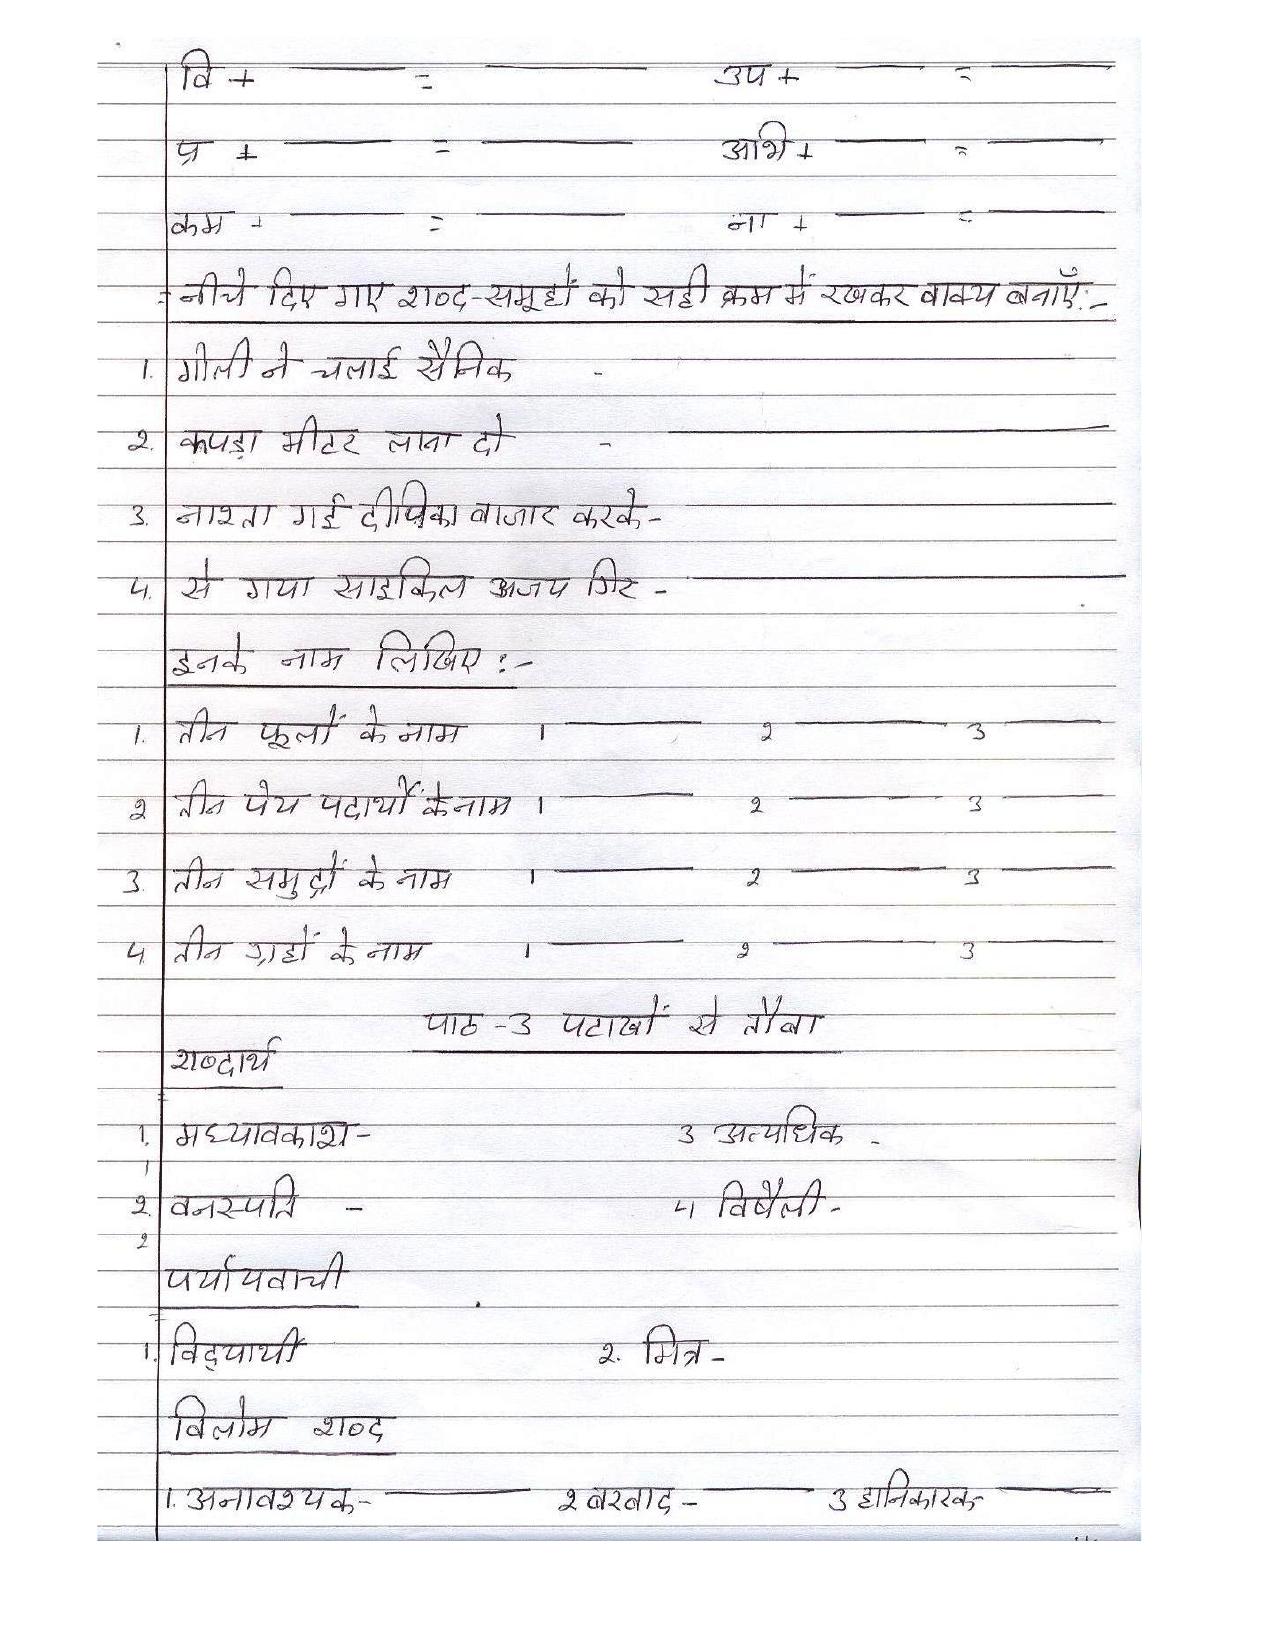 वि + ______ = ______ उप + ______ = ______
प्र + ______ = ______ अभि + ______ = ______
कम + ______ = ______ ना + ______ = ______
नीचे दिए गए शब्द-समूहों को सही क्रम में रखकर वाक्य बनाएँ:-
1. गोली ने चलाई सैनिक - ______
2. कपड़ा मीटर लाना दो - ______
3. नाश्ता गई दीपिका बाजार करके - ______
4. से गया साइकिल अजय गिर - ______
इनके नाम लिखिए :-
1. तीन फूलों के नाम 1 ______ 2 ______ 3 ______
2 तीन पेय पदार्थों के नाम 1 ______ 2 ______ 3 ______
3. तीन समुद्रों के नाम 1 ______ 2 ______ 3 ______
4. तीन ग्रहों के नाम 1 ______ 2 ______ 3 ______
पाठ -3 पटाखों से तौबा
शब्दार्थ
1. मध्यावकाश- 3 अत्यधिक -
1
2. वनस्पति - 4 विषैली-
2
पर्यायवाची
1. विद्यार्थी 2. मित्र-
विलोम शब्द
1. अनावश्यक- ______ 2 बरबाद- ______ 3 हानिकारक- ______